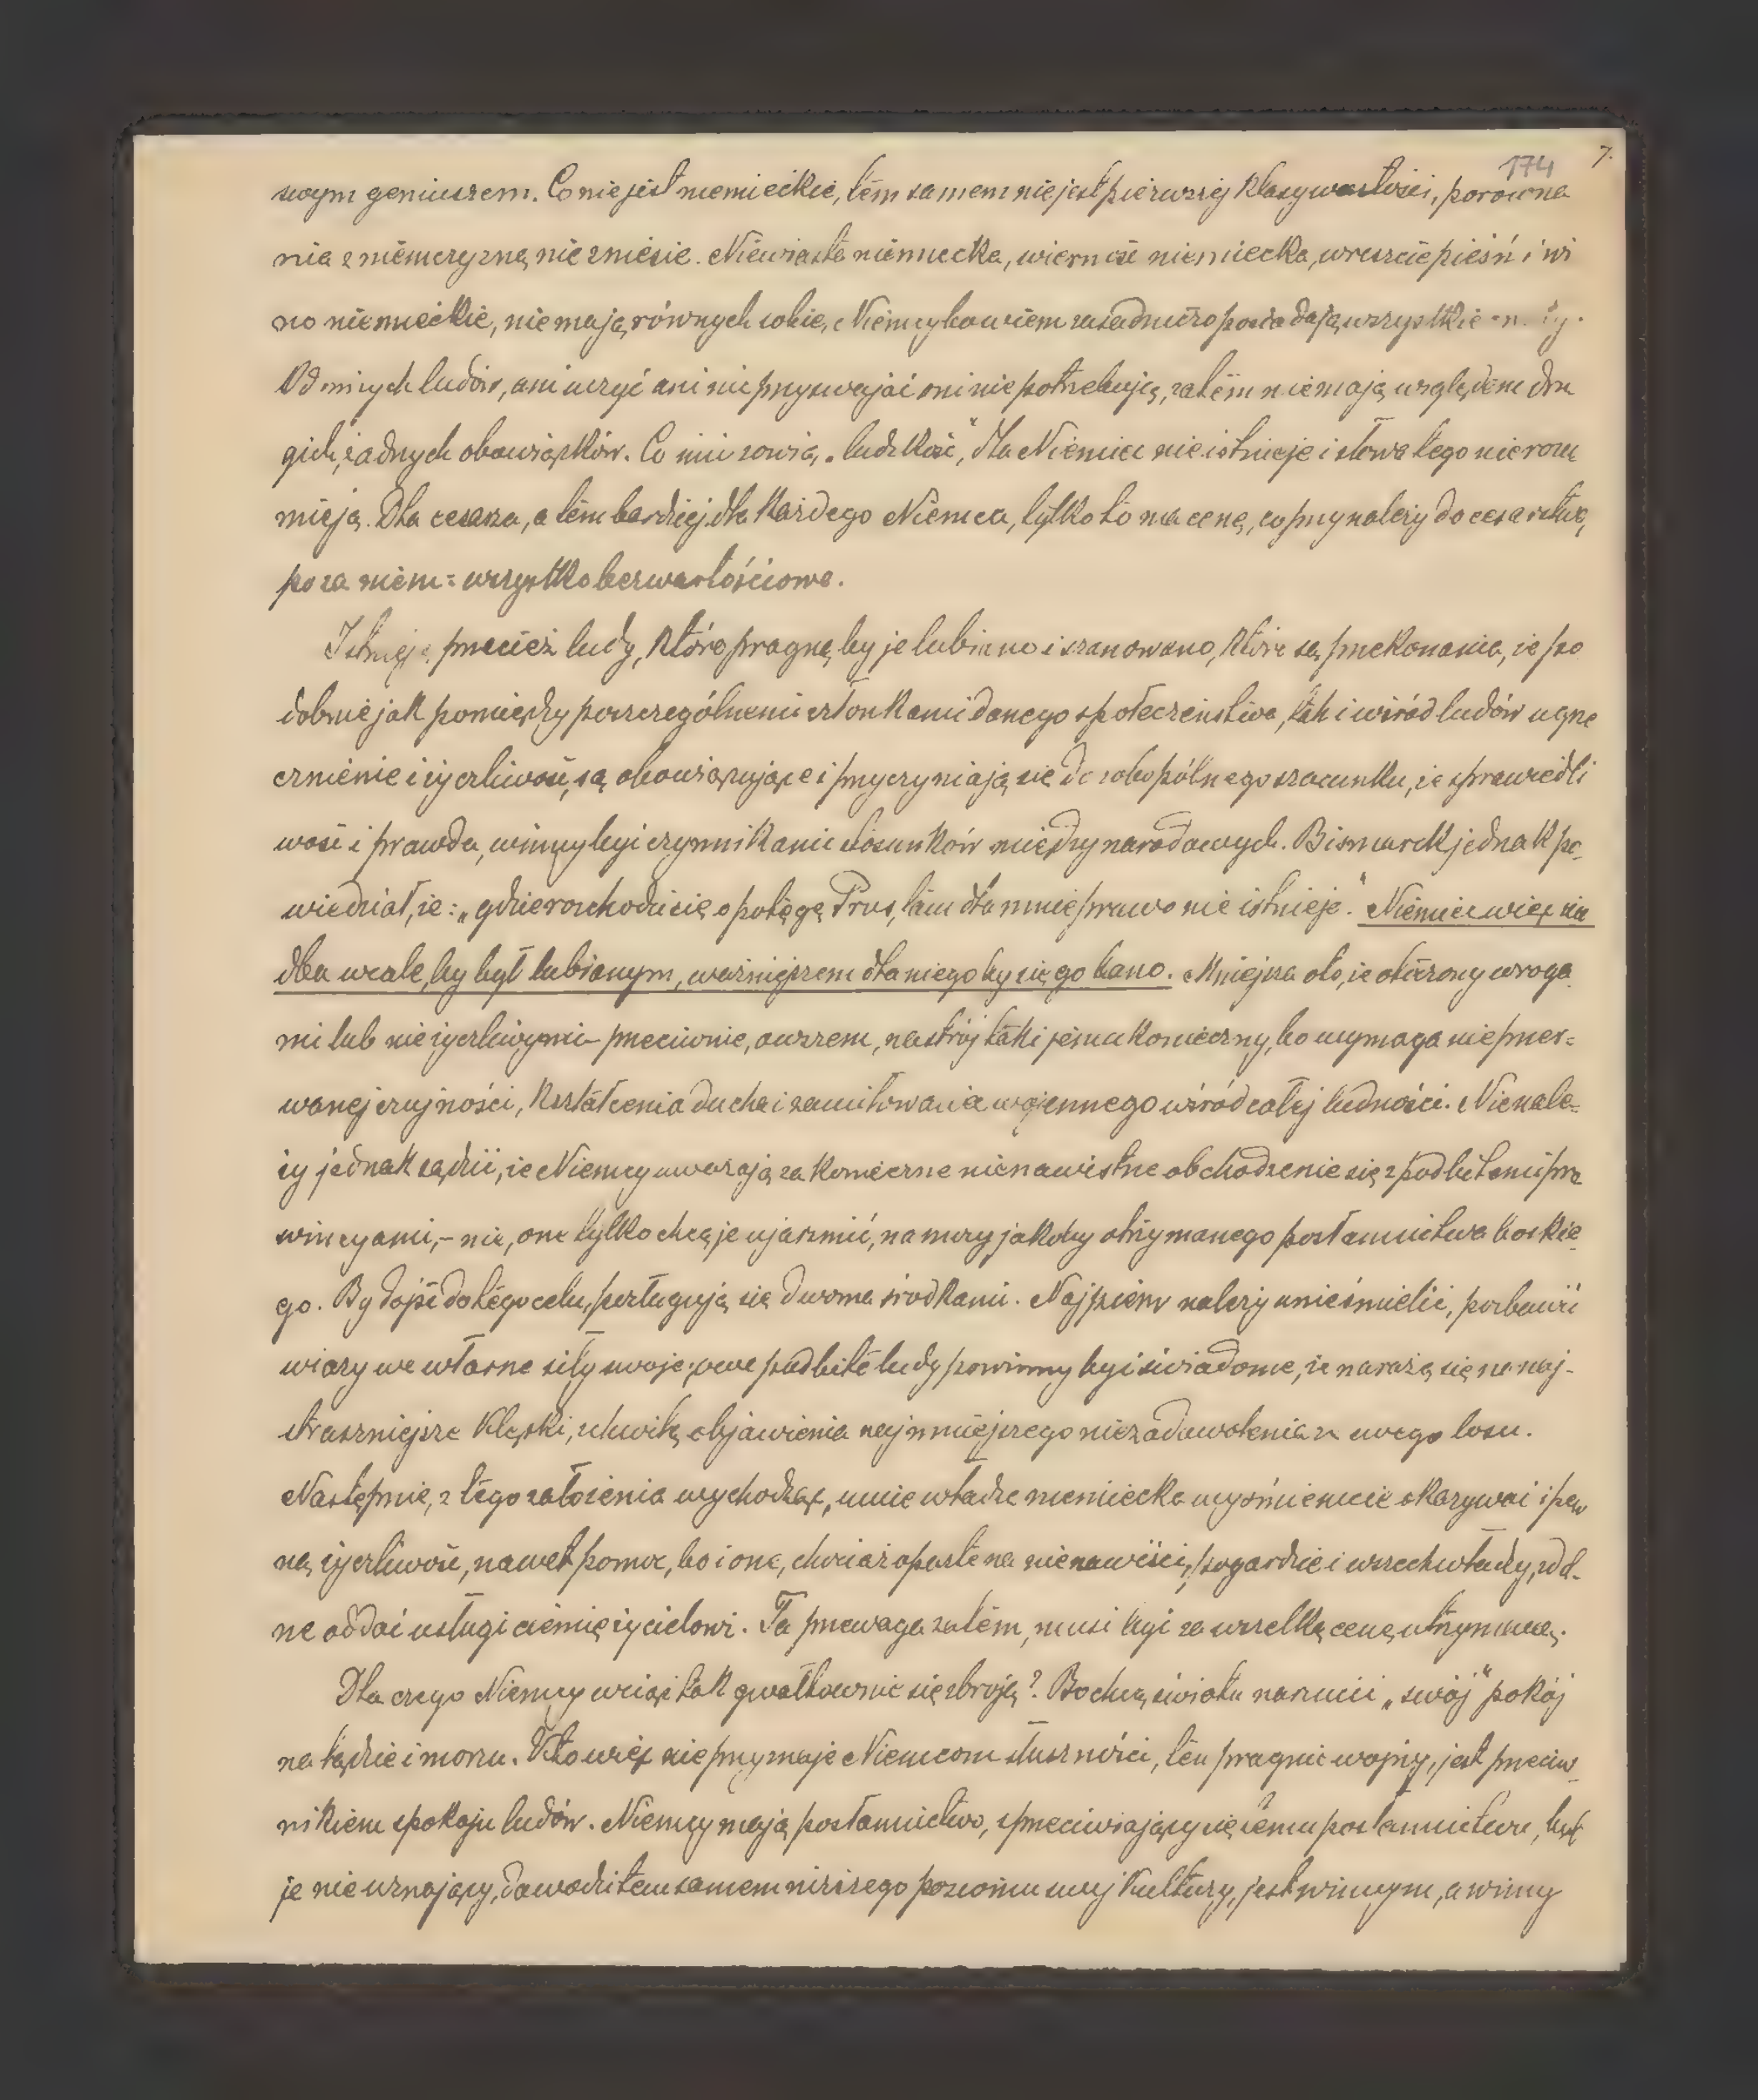 174 7.
swym geniuszem. Co nie jest niemieckie, tém samem nie jest pierwszej klasy wartości, porówna
nia z niemczyzną nie zniesie. Niewiasta niemiecka, wierność niemiecka, wreszcie pieśń i wi
no niemieckie, nie mają równych sobie, Niemcy bowiem zasadniczo posiadają wszystkie
Od innych ludów, ani uczyć ani nic przyswajać oni nie potrzebują, zatém nie mają względem dru
gich, żadnych obowiązków. Co inni zowią „ludzkość", dla Niemca nie istnieje i słowa tego nie rozu
mieją. Dla cesarza, a tém bardziej dla każdego Niemca, tylko to ma cenę, co przynależy do cesarstwa,
poza niém = wszystko bezwartościowe.
Istnieją przecież ludy, które pragną, by je lubiano i szanowano, które są przekonania, że po
dobnie jak pomiędzy poszczególnemi członkami danego społeczeństwa, tak i wśród ludów ugrze
cznienie i życzliwość, są obowiązujące i przyczyniają się do obopólnego szacunku, że sprawiedli
wość i prawda, winny być czynnikami stosunków międzynarodowych. Bismarck jednak po-
wiedział, że: „gdzie rozchodzi się o potęgę Prus, tam dla mnie prawo nie istnieje". Niemiec więc nie
dba wcale, by był lubianym, ważniejszem dla niego by się go bano. Mniejsza oto, że otoczony wroga
mi lub nieżyczliwymi – przeciwnie, owszem, nastrój taki jemu konieczny, bo wymaga nieprzer=
wanej czujności, kształcenia ducha i zamiłowania wojennego wśród całej ludności. Nie nale=
ży jednak sądzić, że Niemcy uważają za konieczne nienawistne obchodzenie się z podbitemi pro
wincyami, – nie, one tylko chcą je ujarzmić, na mocy jakoby otrzymanego posłannictwa boskie-
go. By dojść do tego celu, posługują się dwoma środkami. Najpierw należy onieśmielić, pozbawić
wiary we własne siły swoje; owe podbite ludy powinny być świadome, że narażą się na naj-
straszniejsze klęski, z chwilą objawienia najmniejszego niezadowolenia ze swego losu.
Następnie, z tego założenia wychodząc, umie władze niemiecka wyśmienicie okazywać i pew
ną życzliwość, nawet pomoc, bo i one, chociaż oparte na nienawiści, pogardzie i wszechwładzy, zdol-
ne oddać usługi ciemiężycielowi. Ta przewaga zatém, musi być za wszelką cenę utrzymaną.
Dla czego Niemcy wciąż tak gwałtownie się zbroją? Bo chcą światu narzucić „swój" pokój
na lądzie i morzu. Kto więc nie przyznaje Niemcom słuszności, ten pragnie wojny, jest przeciw-
nikiem spokoju ludów. Niemcy mają posłannictwo, sprzeciwiający się temu posłannictwu, lub
je nie uznający, dowodzi tem samem niższego poziomu swej kultury, jest winnym, a winny